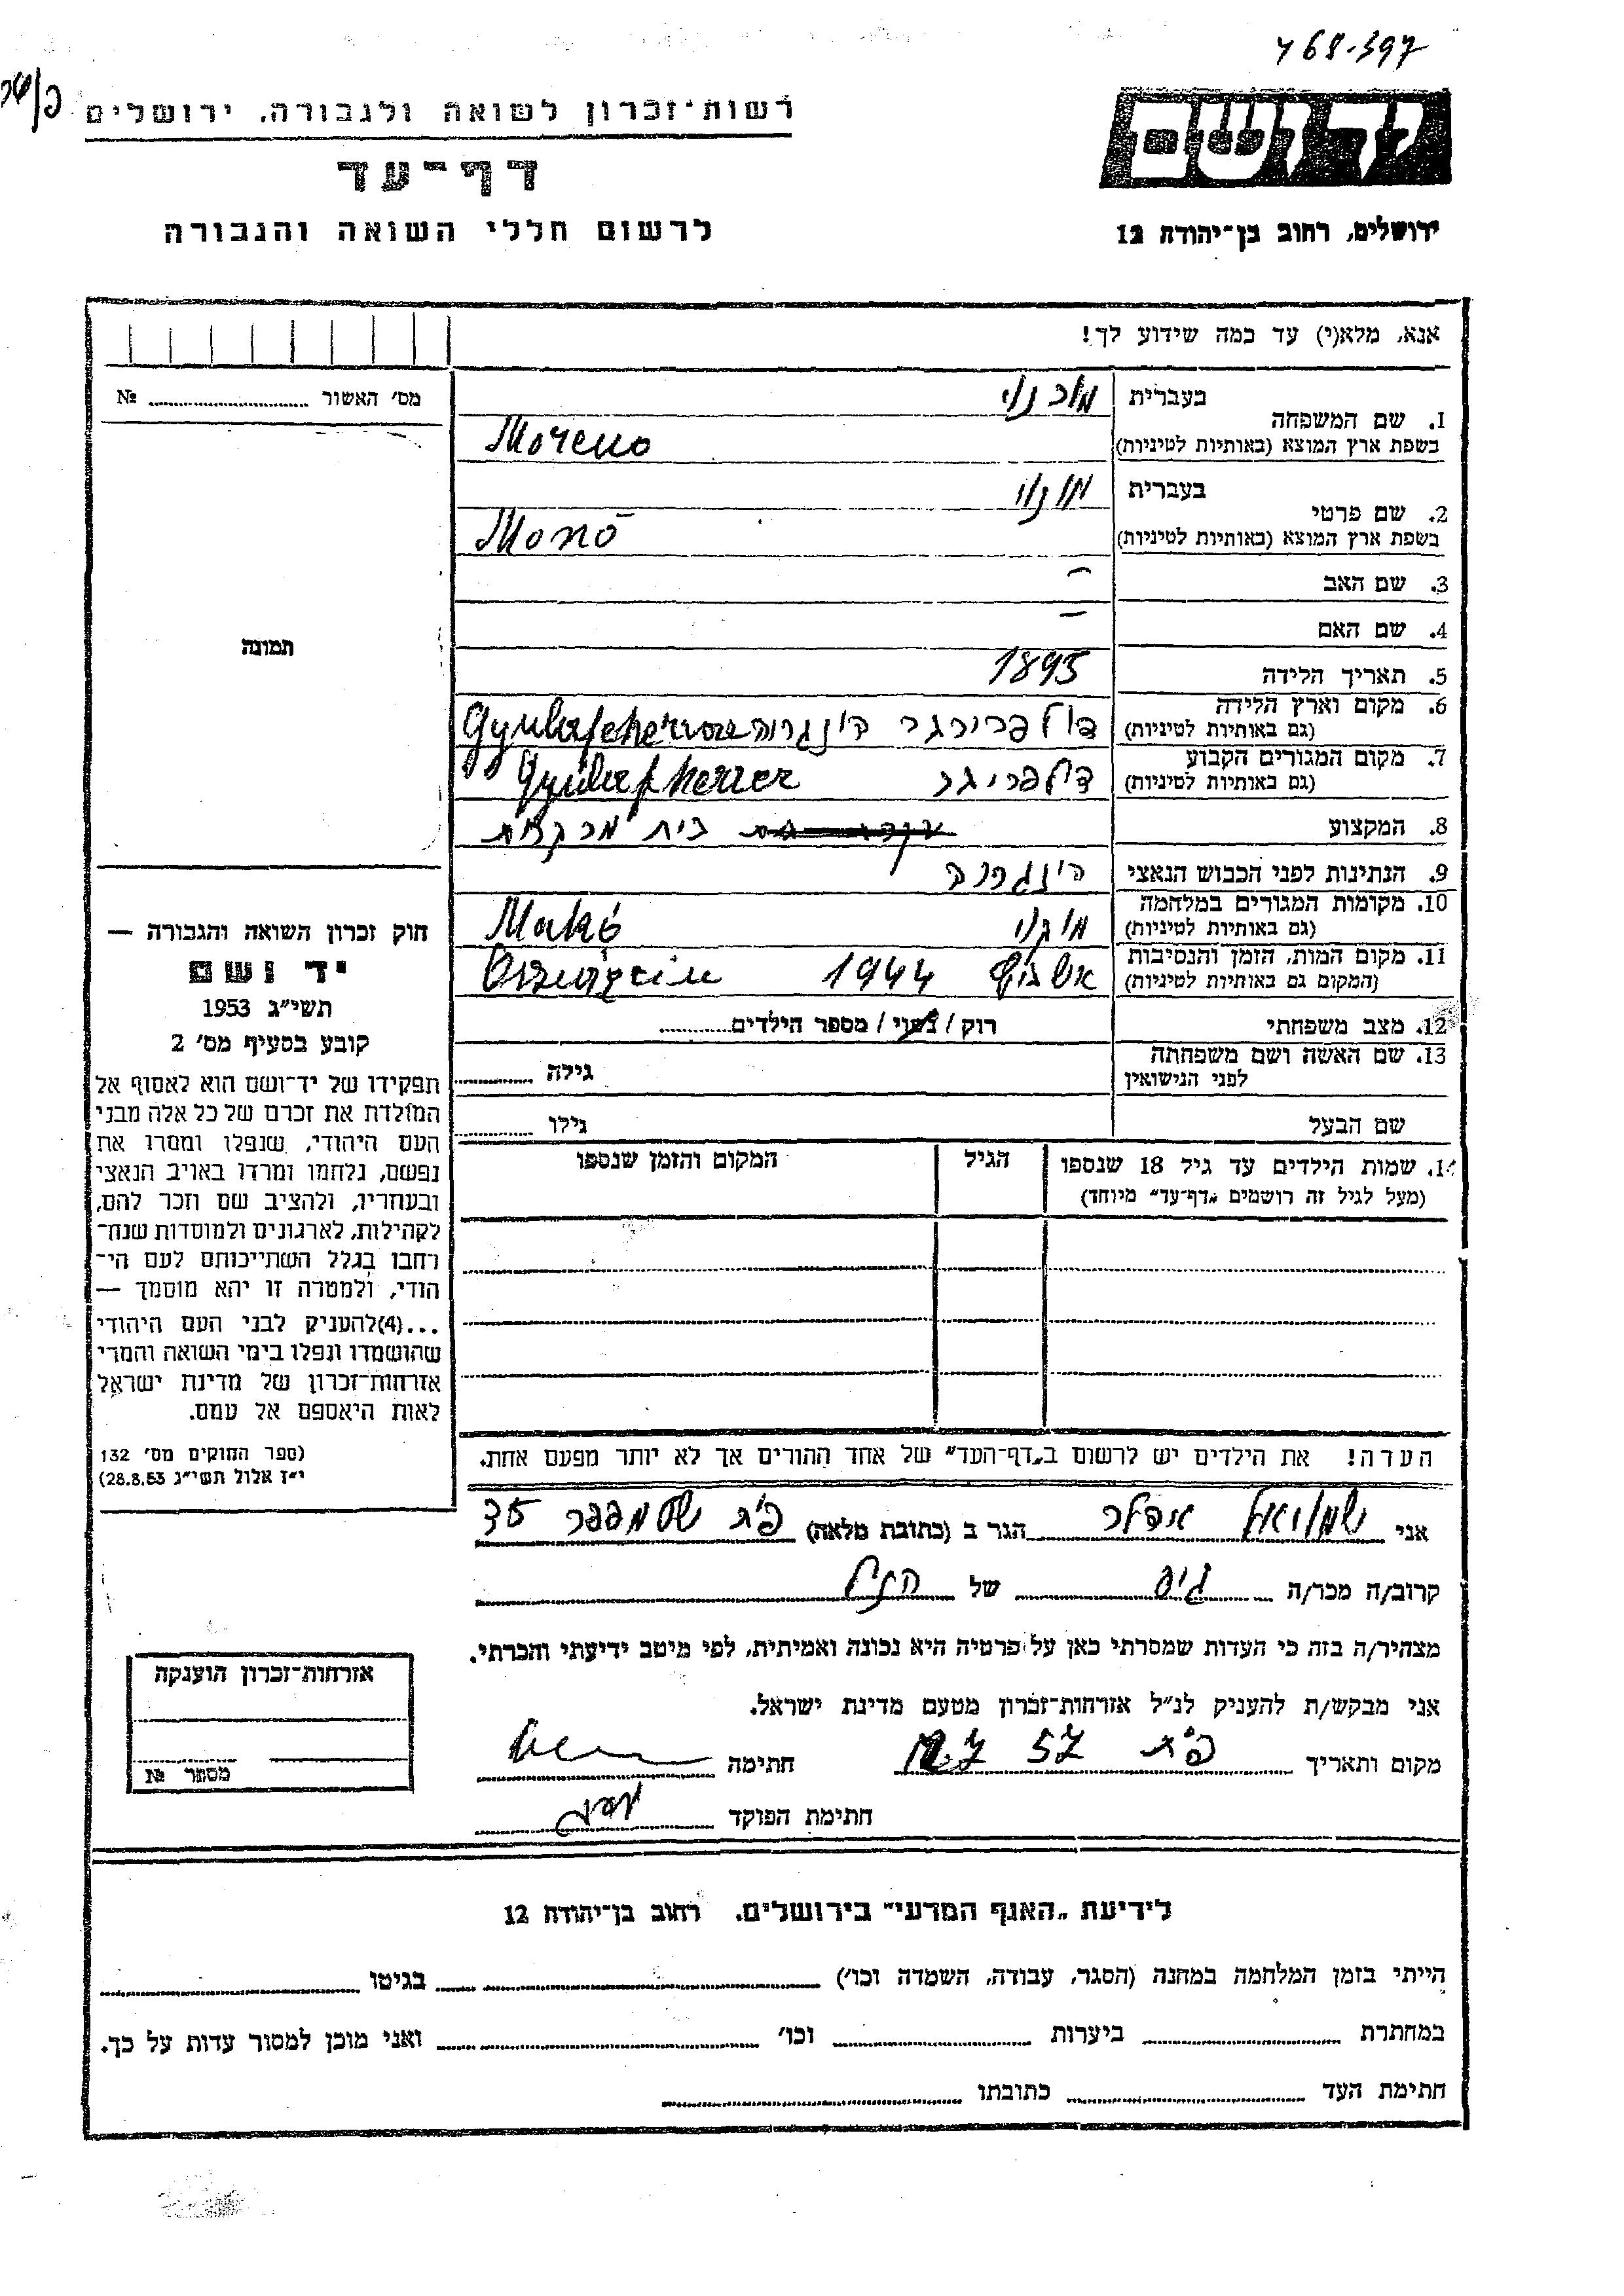 468-397
רשות-זכרון לשואה ולגבורה, ירושלים
דף-עד
לרשום חללי השואה והגבורה
יד ושם
ירושלים, רחוב בן-יהודה 12
אנא, מלא(י) עד כמה שידוע לך!
מס׳ האשור № 
1. שם המשפחה
בעברית
בשפת ארץ המוצא (באותיות לטיניות) Moreno
2. שם פרטי
בעברית
בשפת ארץ המוצא (באותיות לטיניות) Monō
3. שם האב –
4. שם האם –
תמונה
5. תאריך הלידה 1895
6. מקום וארץ הלידה
(גם באותיות לטיניות)
7. מקום המגורים הקבוע
(גם באותיות לטיניות)
8. המקצוע בית מרקחת
9. הנתינות לפני הכבוש הנאצי
10. מקומות המגורים במלחמה
(גם באותיות לטיניות) Makó
11. מקום המות, הזמן והנסיבות
(המקום גם באותיות לטיניות) 1944
12. מצב משפחתי רוק / נשוי / מספר הילדים
13. שם האשה ושם משפחתה
לפני הנישואין גילה
שם הבעל גילו
14. שמות הילדים עד גיל 18 שנספו הגיל המקום והזמן שנספו
(מעל לגיל זה רושמים "דף-עד" מיוחד)
חוק זכרון השואה והגבורה —
יד ושם
תשי״ג 1953
קובע בסעיף מס׳ 2
תפקידו של יד-ושם הוא לאסוף אל
המולדת את זכרם של כל אלה מבני
העם היהודי, שנפלו ומסרו את
נפשם, נלחמו ומרדו באויב הנאצי
ובעוזריו, ולהציב שם וזכר להם,
לקהילות, לארגונים ולמוסדות שנח-
רבו בגלל השתייכותם לעם הי-
הודי, ולמטרה זו יהא מוסמך —
...(4)להעניק לבני העם היהודי
שהושמדו ונפלו בימי השואה והמרי
אזרחות-זכרון של מדינת ישראל
לאות היאספם אל עמם.
(ספר החוקים מס׳ 132
י״ז אלול תשי״ג 28.8.53)
הערה! את הילדים יש לרשום ב"דף-העד" של אחד ההורים אך לא יותר מפעם אחת.
אני שמואל אדלר הגר ב (כתובת מלאה) פ״ת
קרוב/ה מכר/ה גיס של
מצהיר/ה בזה כי העדות שמסרתי כאן על פרטיה היא נכונה ואמיתית, לפי מיטב ידיעתי והכרתי.
אני מבקש/ת להעניק לנ״ל אזרחות-זכרון מטעם מדינת ישראל.
מקום ותאריך פ״ת 57 חתימה
חתימת הפוקד
אזרחות-זכרון הוענקה
מספר №
לידיעת "האגף המדעי" בירושלים. רחוב בן-יהודה 12
הייתי בזמן המלחמה במחנה (הסגר, עבודה, השמדה וכו׳) בגיטו
במחתרת ביערות וכו׳ ואני מוכן למסור עדות על כך.
חתימת העד כתובתו